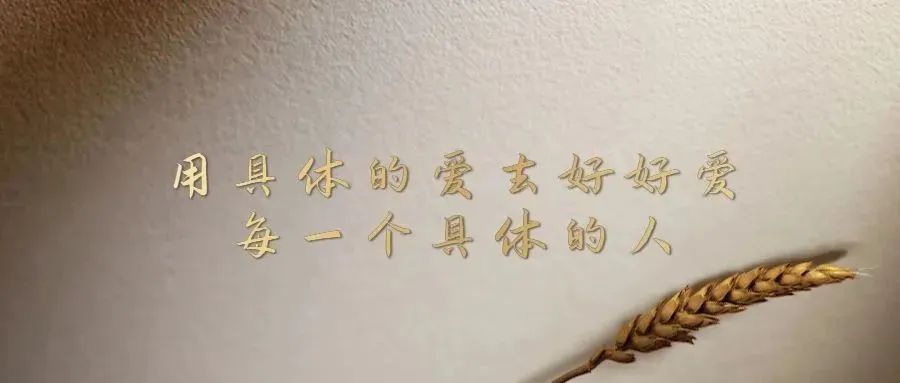 用具体的爱去好好爱
每一个具体的人